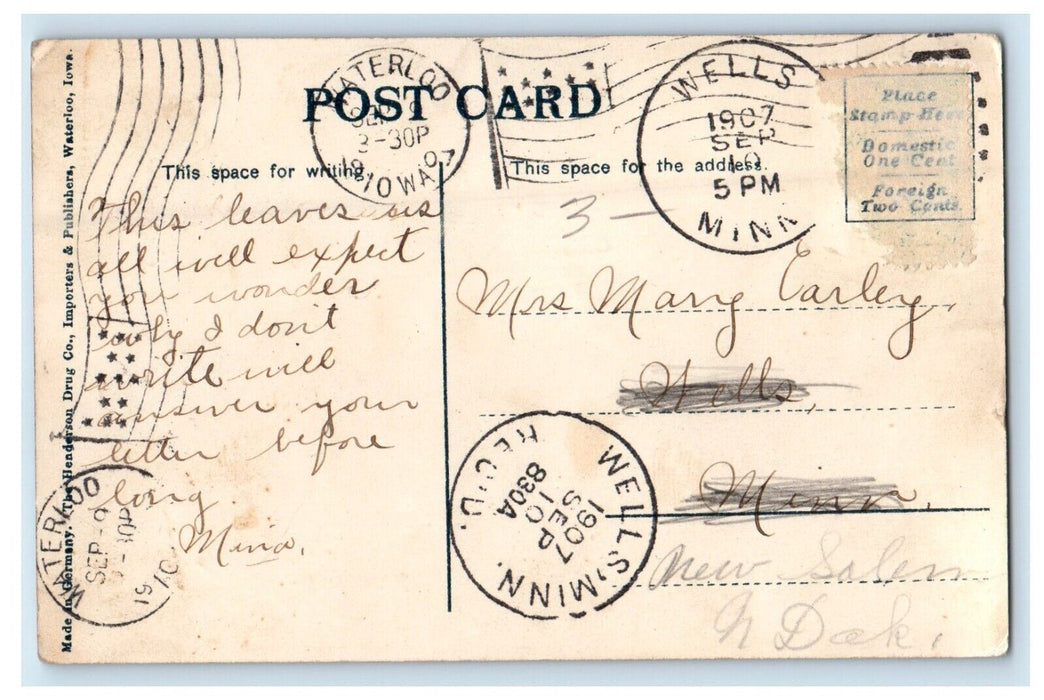 POST CARD
This space for writing.
This space for the address.
Place
Stamp Here
Domestic
One Cent
Foreign
Two Cents.
WATERLOO
SEP 9
3-30P
1907
IOWA
WELLS
1907
SEP
10
5 PM
MINN
3 -
This leaves us
all well expect
you wonder
why I don't
write will
answer your
letter before
long.
Mina.
Mrs Mary Earley,
Wells,
Minn.
New Salem
N Dak.
WELLS, MINN.
1907
SEP
10
830A
REC'D.
WATERLOO
SEP 9
19
IO
Made in Germany. The Henderson Drug Co., Importers & Publishers, Waterloo, Iowa.